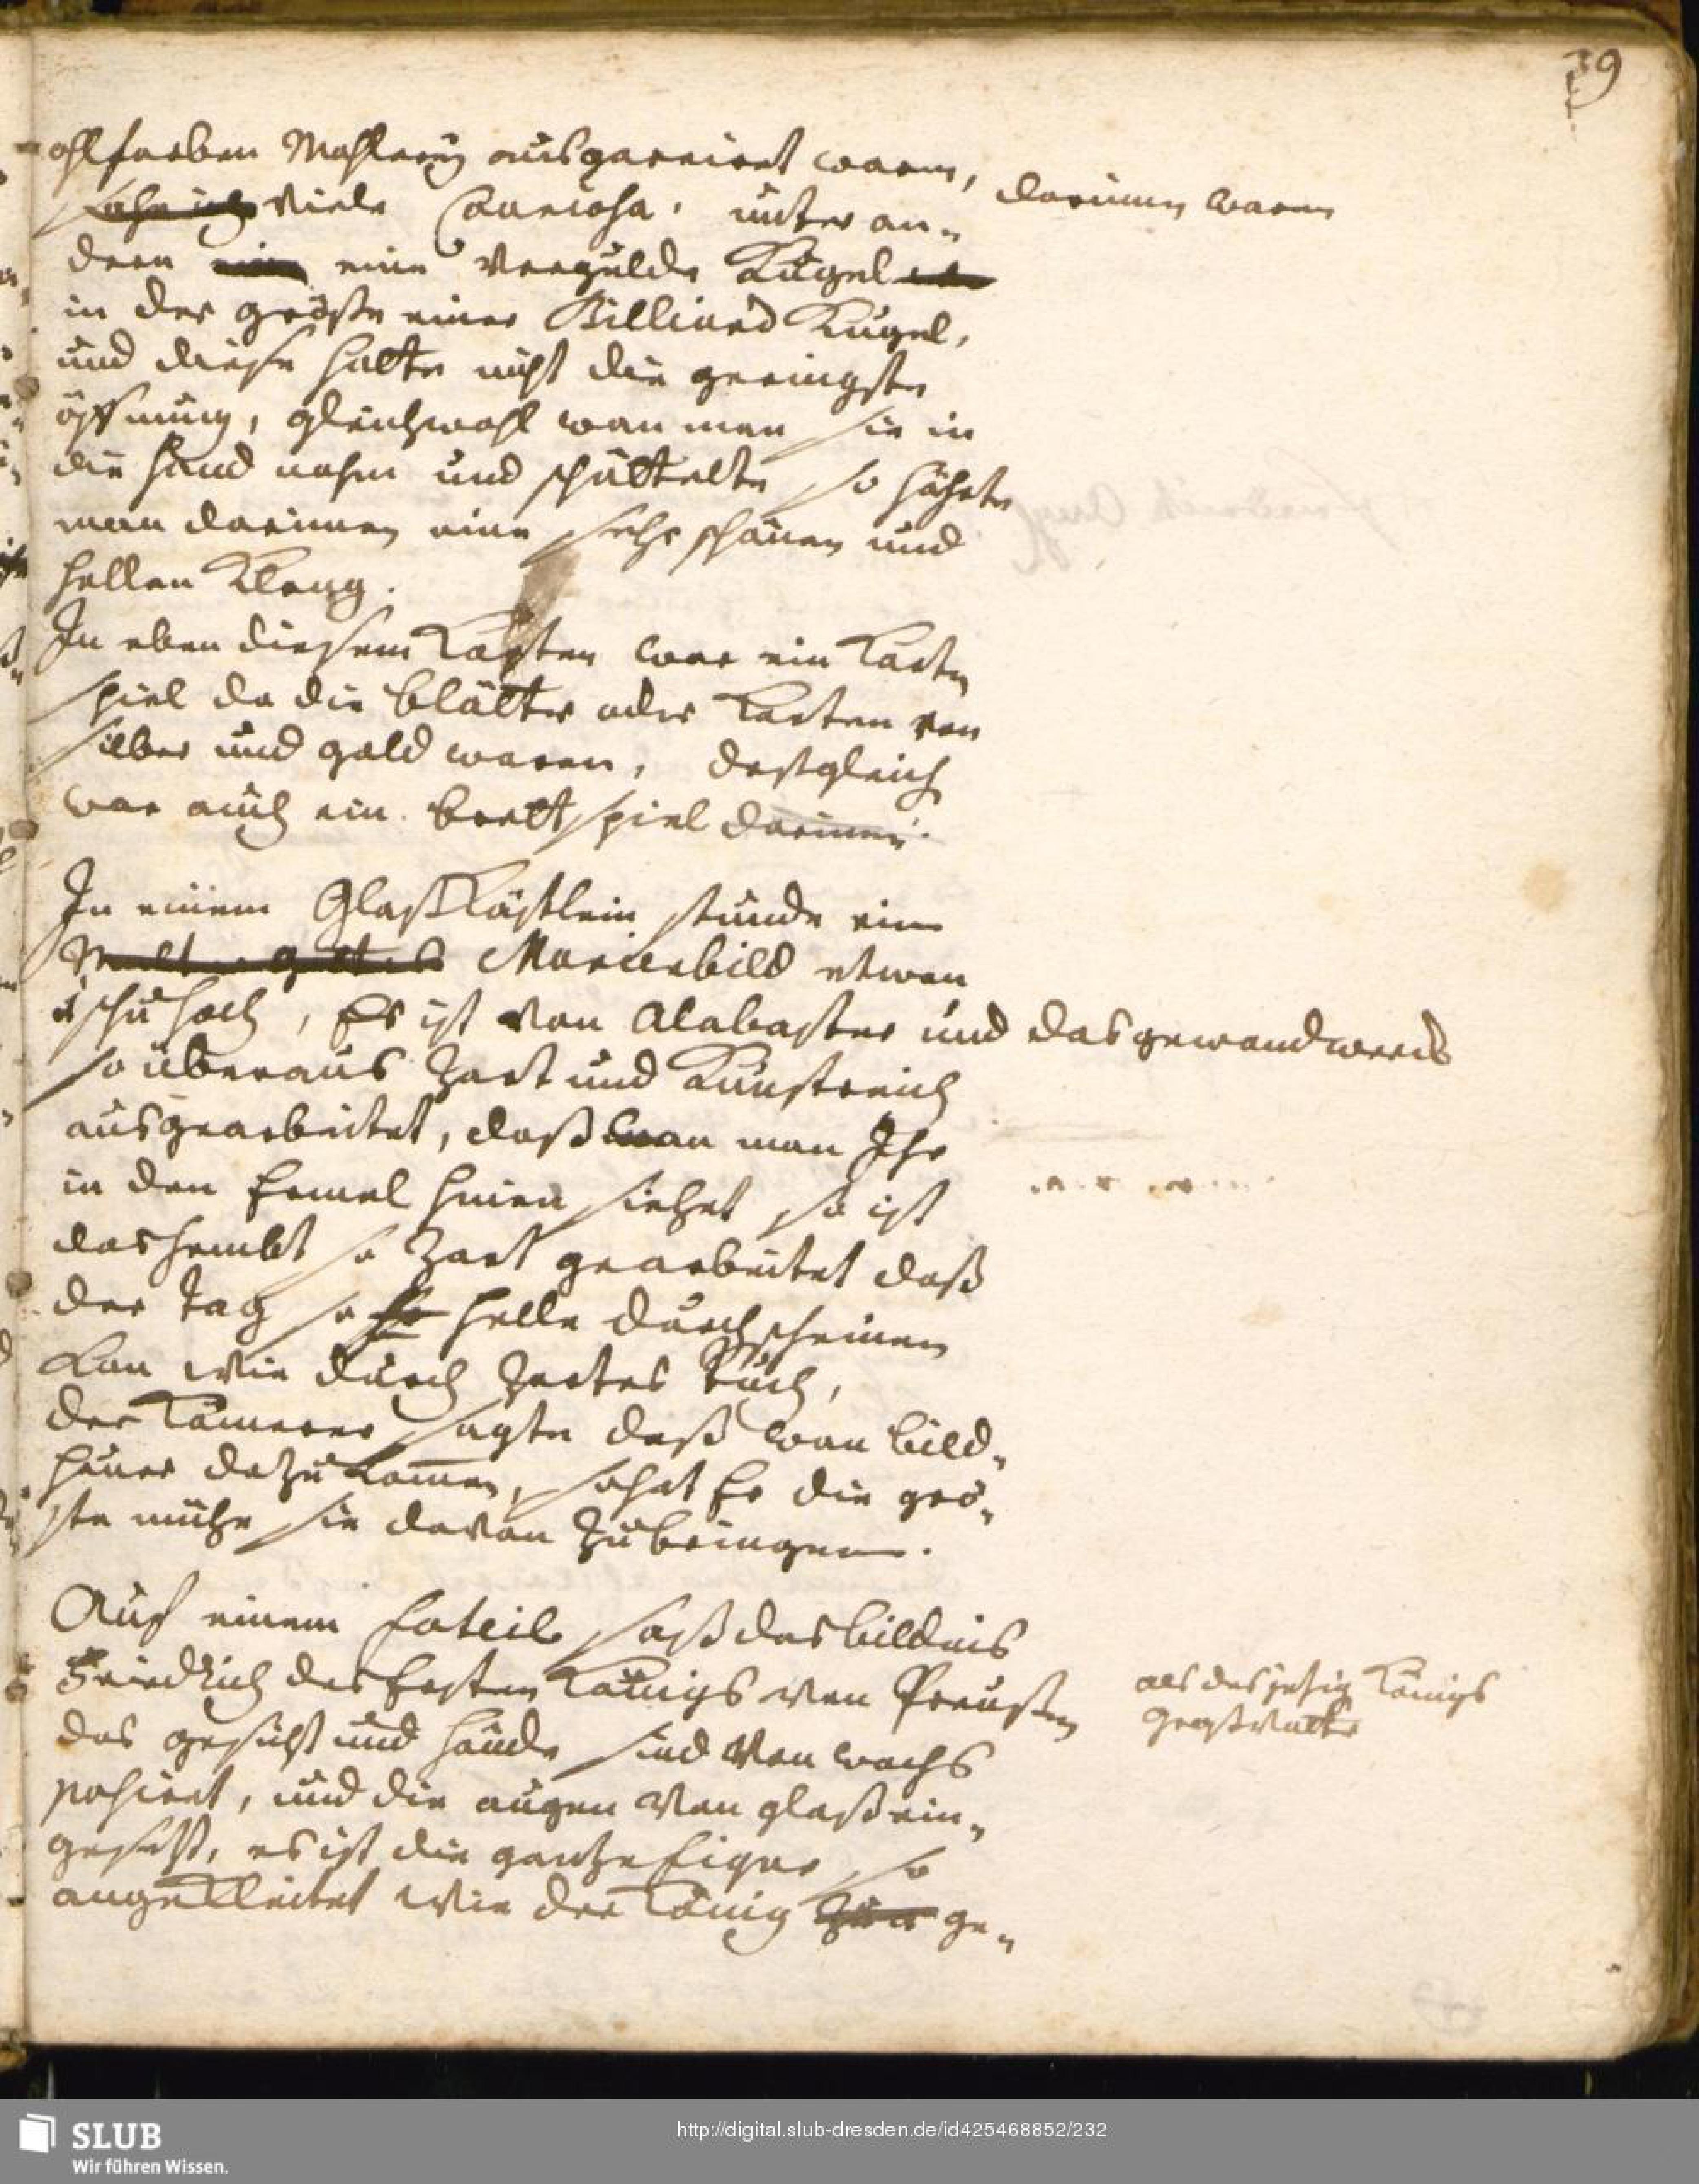 39
ohlfarben Mahlereÿ ausgarniret waren, darinnen waren
sahe ich viele Couriosa, unter an„
dern ein eine vergulde Kugel
in der größe einer Billiard Kugel,
und diese hatte nicht die geringste
öffnung, gleichwohl wan man sie in
die hand nahm und schüttelte so höhrte
man darinnen eine sehr schönen und
hellen Klang.
In eben diesem Kasten war ein Karten
spiel da die blätter oder Karten von
silber und gold waren, deßgleich
war auch ein brettspiel darinnen.
In einem Glaßkästlein stunde ein
Mutter gottes Marienbild etwan
schu hoch, Es ist von Alabaster und das gewand
so überaus zart und Kunstreich
ausgearbeitet, daß wan man Ihr
in den Ermel hinein siehet so ist
das hembt so zart gearbeitet daß
der tag so helle durchscheinen
kan wie durch zartes tuch,
der Kämerer sagte daß wan bild„
hauer dazu kommen, so hat Er die grö„
ste mühe sie davon zu bringen.
Auf einem fateil saß das bildnis
Friedrich des Ersten Königs von Preußen als des jetzig Königs
Großvatter
das gesicht und hände sind von wachs
posirt, und die augen von glaß ein„
gesetzt, es ist die gantze figur so
angekleidet wie der König ge„
SLUB
Wir führen Wissen.
http://digital.slub-dresden.de/id425468852/232